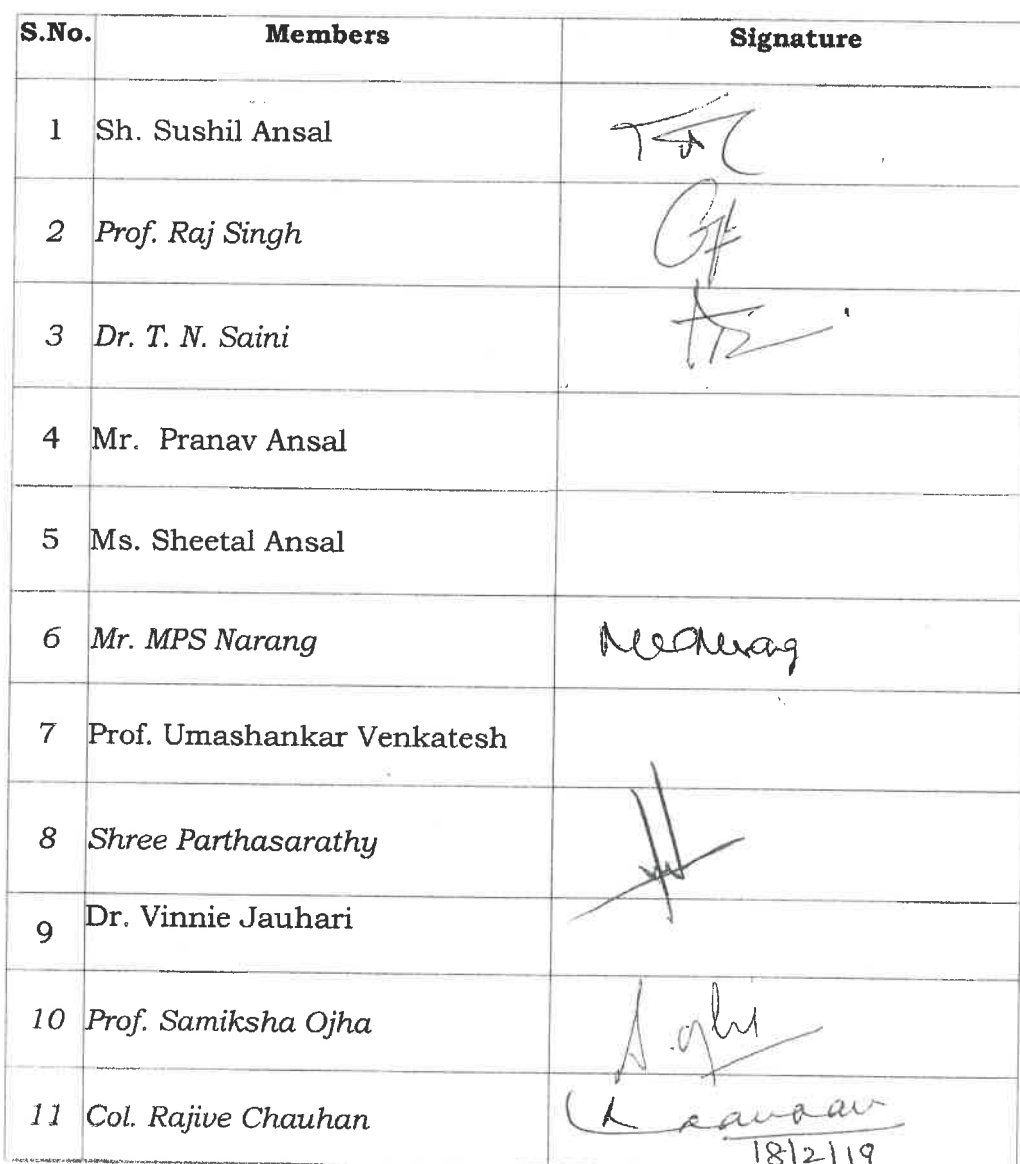 S.No. Members Signature
1 Sh. Sushil Ansal
2 Prof. Raj Singh
3 Dr. T. N. Saini
4 Mr. Pranav Ansal
5 Ms. Sheetal Ansal
6 Mr. MPS Narang
7 Prof. Umashankar Venkatesh
8 Shree Parthasarathy
9 Dr. Vinnie Jauhari
10 Prof. Samiksha Ojha
11 Col. Rajive Chauhan
18/2/19